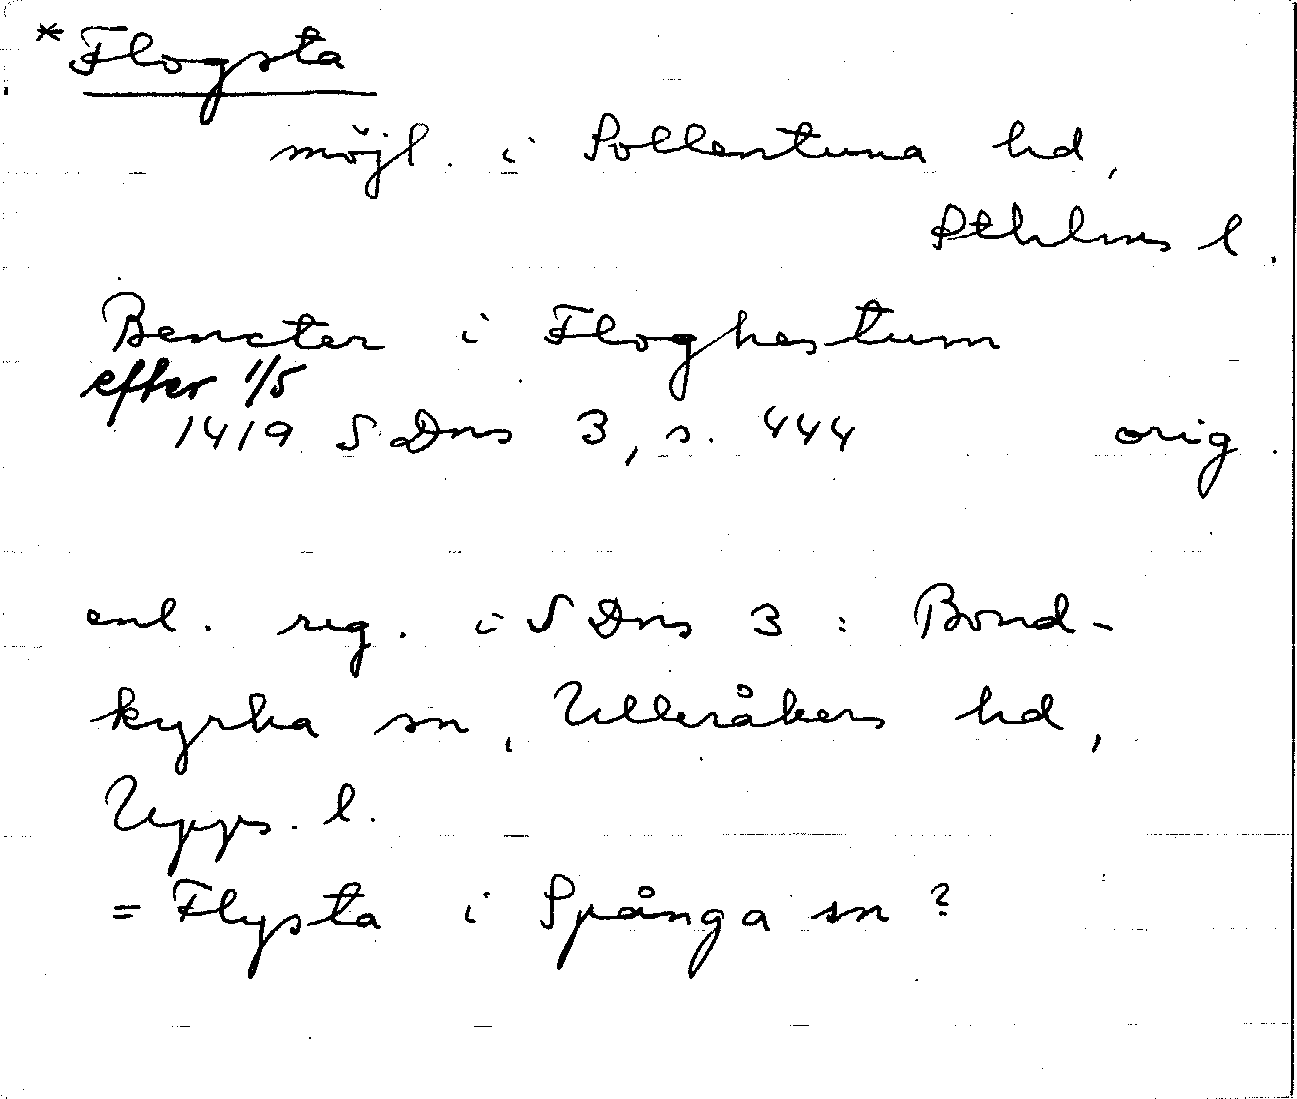 * Flogsta
möjl. i Sollentuna hd,
Sthlms l.
Bencter i Floghestum
efter 1/5
1419 SDns 3, s. 444 orig.
enl. reg. i SDns 3: Bond-
kyrka sn, Ulleråkers hd,
Upps. l.
= Flysta i Spånga sn?